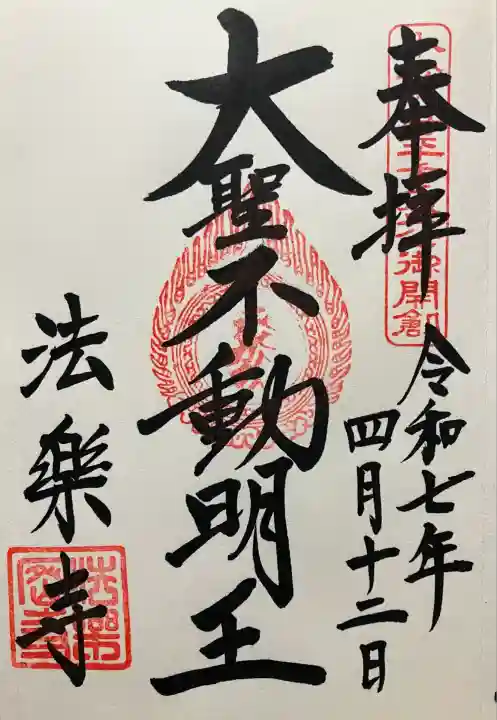 奉拝
令和七年
四月十二日
大聖不動明王
法樂寺